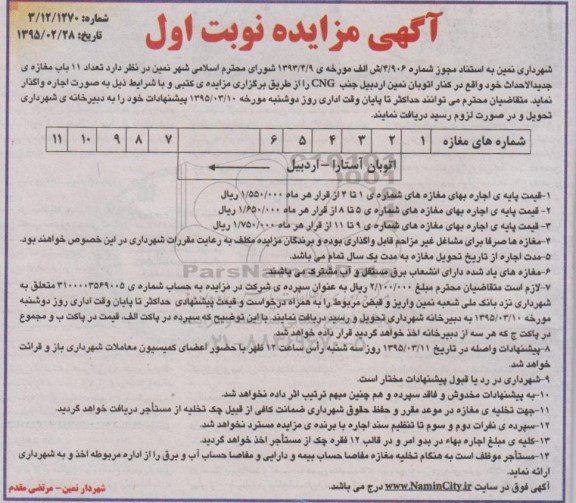 شماره: ۳/۱۲/۱۲۷۰
تاریخ: ۱۳۹۵/۰۲/۲۸
آگهی مزایده نوبت اول
شهرداری نمین به استناد مجوز شماره ۴/۹۰۶/ش الف مورخه ی ۱۳۹۳/۴/۹ شورای محترم اسلامی شهر نمین در نظر دارد تعداد ۱۱ باب مغازه ی
جدیدالاحداث خود واقع در کنار اتوبان نمین اردبیل جنب CNG را از طریق برگزاری مزایده ی کتبی و با شرایط ذیل به صورت اجاره واگذار
نماید. متقاضیان محترم می توانند حداکثر تا پایان وقت اداری روز دوشنبه مورخه ۱۳۹۵/۰۳/۱۰ پیشنهادات خود را به دبیرخانه ی شهرداری
تحویل و در صورت لزوم رسید دریافت نمایند.
شماره های مغازه ۱ ۲ ۳ ۴ ۵ ۶ ۷ ۸ ۹ ۱۰ ۱۱
اتوبان آستارا - اردبیل
۱-قیمت پایه ی اجاره بهای مغازه های شماره ی ۱ تا ۴ از قرار هر ماه ۱/۵۵۰/۰۰۰ ریال
۲- قیمت پایه ی اجاره بهای مغازه های شماره ی ۵ تا ۸ از قرار هر ماه ۱/۶۵۰/۰۰۰ ریال
۳- قیمت پایه ی اجاره بهای مغازه های شماره ی ۹ تا ۱۱ از قرار هر ماه ۱/۷۵۰/۰۰۰ ریال
۴-مغازه ها صرفا برای مشاغل غیر مزاحم قابل واگذاری بوده و برندگان مزایده مکلف به رعایت مقررات شهرداری در این خصوص خواهند بود.
۵-مدت اجاره از تاریخ تحویل مغازه به مدت یک سال تمام می باشد.
۶-مغازه های یاد شده دارای انشعاب برق مستقل و آب مشترک می باشند.
۷-لازم است متقاضیان محترم مبلغ ۲/۱۰۰/۰۰۰ ریال به عنوان سپرده ی شرکت در مزایده به حساب شماره ی ۳۱۰۰۰۰۳۵۶۹۰۰۵ متعلق به
شهرداری نزد بانک ملی شعبه نمین واریز و قبض مربوط را به همراه درخواست و قیمت پیشنهادی حداکثر تا پایان وقت اداری روز دوشنبه
مورخه ۱۳۹۵/۰۳/۱۰ به دبیرخانه شهرداری تحویل و رسید دریافت نمایند. با این توضیح که سپرده در پاکت الف، قیمت در پاکت ب و مجموع
در پاکت ج که هر سه از دبیرخانه اخذ خواهد گردید قرار داده خواهد شد.
۸-پیشنهادات واصله در تاریخ ۱۳۹۵/۰۳/۱۱ روز سه شنبه رأس ساعت ۱۲ ظهر با حضور اعضای کمیسیون معاملات شهرداری باز و قرائت
خواهد شد.
۹-شهرداری در رد یا قبول پیشنهادات مختار است.
۱۰-به پیشنهادات مخدوش و فاقد سپرده و هم چنین مبهم ترتیب اثر داده نخواهد شد.
۱۱-جهت تخلیه ی مغازه در موعد مقرر و حفظ حقوق شهرداری ضمانت کافی از قبیل چک تخلیه از مستأجر دریافت خواهد گردید.
۱۲-سپرده ی نفرات دوم و سوم تا تنظیم سند اجاره با برنده ی مزایده مسترد نخواهد شد.
۱۳-کلیه ی مبلغ اجاره بهاء در بدو امر و در قالب ۱۲ فقره چک از مستأجر اخذ خواهد گردید.
۱۴-مستأجر موظف است به هنگام تخلیه مغازه مفاصا حساب بیمه و دارایی و مفاصا حساب آب و برق را از اداره مربوطه اخذ و به شهرداری
ارائه نماید.
آگهی فوق در سایت www.NaminCity.ir درج می باشد.
شهردار نمین - مرتضی مقدم